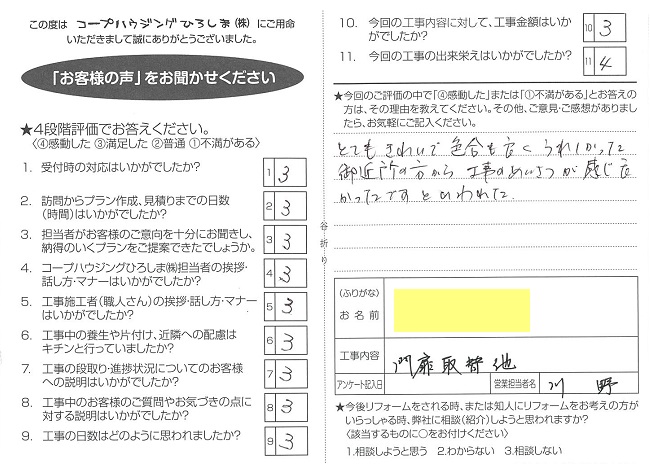 この度は コープハウジングひろしま(株) にご用命
いただきまして誠にありがとうございました。
「お客様の声」をお聞かせください
★4段階評価でお答えください。
〈④感動した ③満足した ②普通 ①不満がある〉
1. 受付時の対応はいかがでしたか? 1 3
2. 訪問からプラン作成、見積りまでの日数
(時間)はいかがでしたか? 2 3
3. 担当者がお客様のご意向を十分にお聞きし、
納得のいくプランをご提案できたでしょうか。 3 3
4. コープハウジングひろしま㈱担当者の挨拶・
話し方・マナーはいかがでしたか? 4 3
5. 工事施工者(職人さん)の挨拶・話し方・マナー
はいかがでしたか? 5 3
6. 工事中の養生や片付け、近隣への配慮は
キチンと行っていましたか? 6 3
7. 工事の段取り・進捗状況についてのお客様
への説明はいかがでしたか? 7 3
8. 工事中のお客様のご質問やお気づきの点に
対する説明はいかがでしたか? 8 3
9. 工事の日数はどのように思われましたか? 9 3
谷折り
10. 今回の工事内容に対して、工事金額はいか
がでしたか? 10 3
11. 今回の工事の出来栄えはいかがでしたか? 11 4
★今回のご評価の中で「④感動した」または「①不満がある」とお答えの
方は、その理由を教えてください。その他、ご意見・ご感想がありまし
たら、お気軽にご記入ください。
とてもきれいで色合も良くうれしかった
御近所の方から工事のあいさつが感じ良
かったですといわれた.
(ふりがな)
お名前
工事内容 門扉取替他
アンケート記入日 営業担当者名 川野
★今後リフォームをされる時、または知人にリフォームをお考えの方が
いらっしゃる時、弊社に相談(紹介)しようと思われますか?
〈該当するものに○をお付けください〉
1.相談しようと思う 2.わからない 3.相談しない